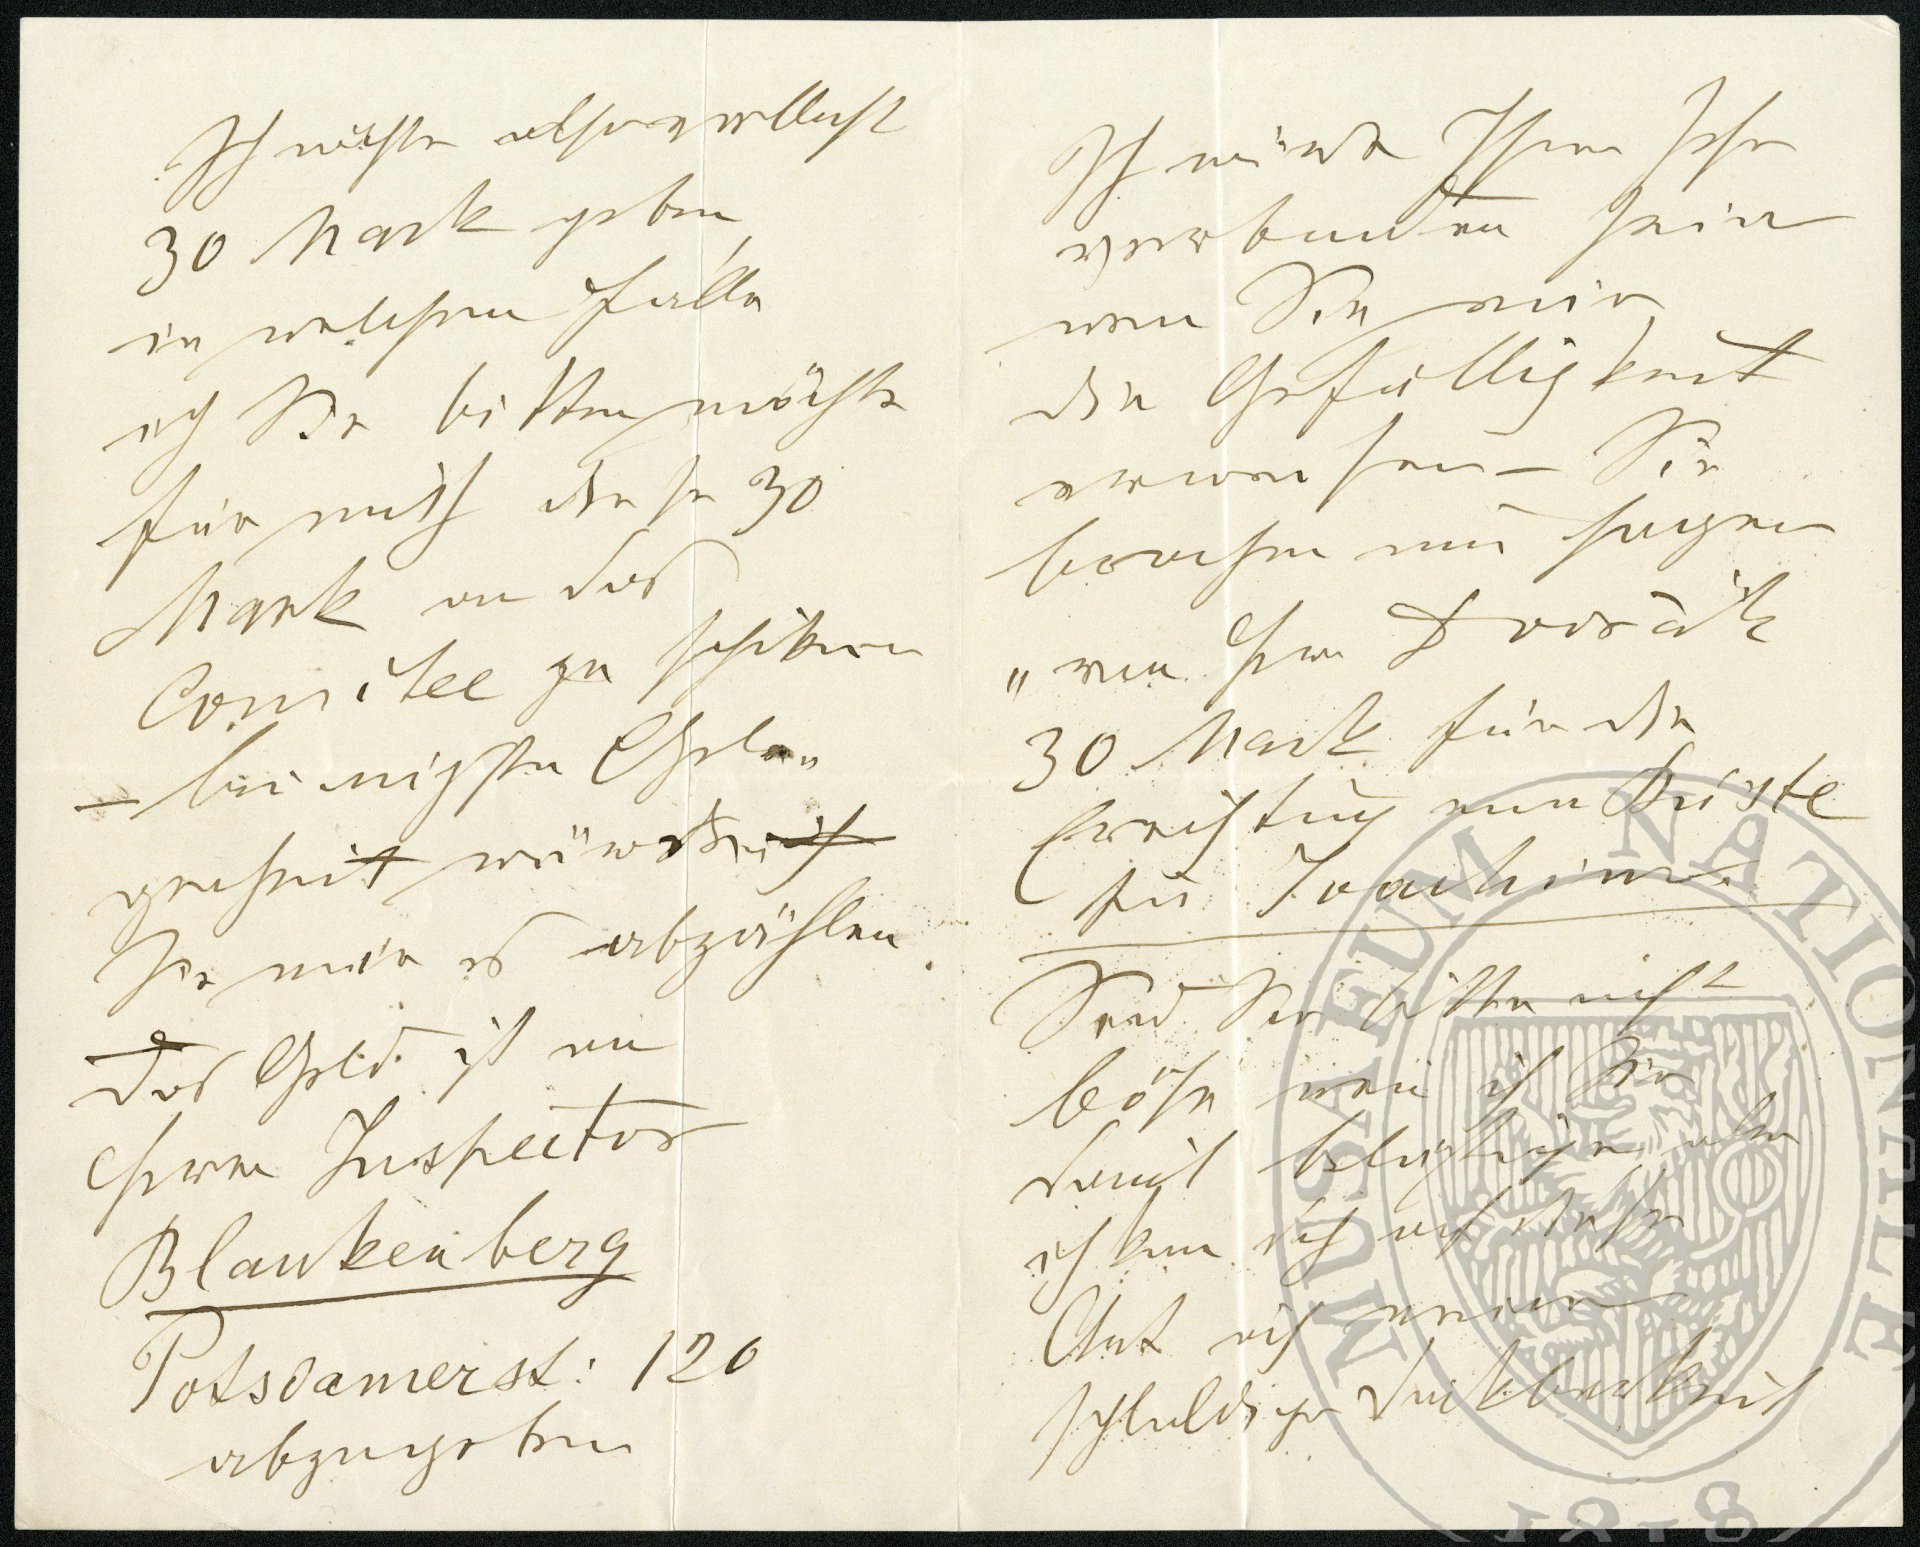 Ich möchte also vielleicht
30 Mark geben
in welchem Falle
ich Sie bitten möchte
für mich diese 30
Mark an das
Comitee zu schiken
– bei nächster Gele„
genheit würden ich
Sie mir es abzählen
Das Geld ist an
Herrn Inspector
Blankenberg
Potsdamerst: 120
abzugeben
Ich würde Ihnen sehr
verbunden sein
wen Sie mir
die Gefälligkeit
erweisen – Sie
brauchen nur sagen
„von Herrn Dvořák
30 Mark für die
Errichtung einer Büste
für Joachim.
Seid Sie bitte nicht
böse wen ich Sie
damit belästige, aber
ich kan
Art
schuldiger Dankbarkeit
MUSAEUM NATIONALE
1818